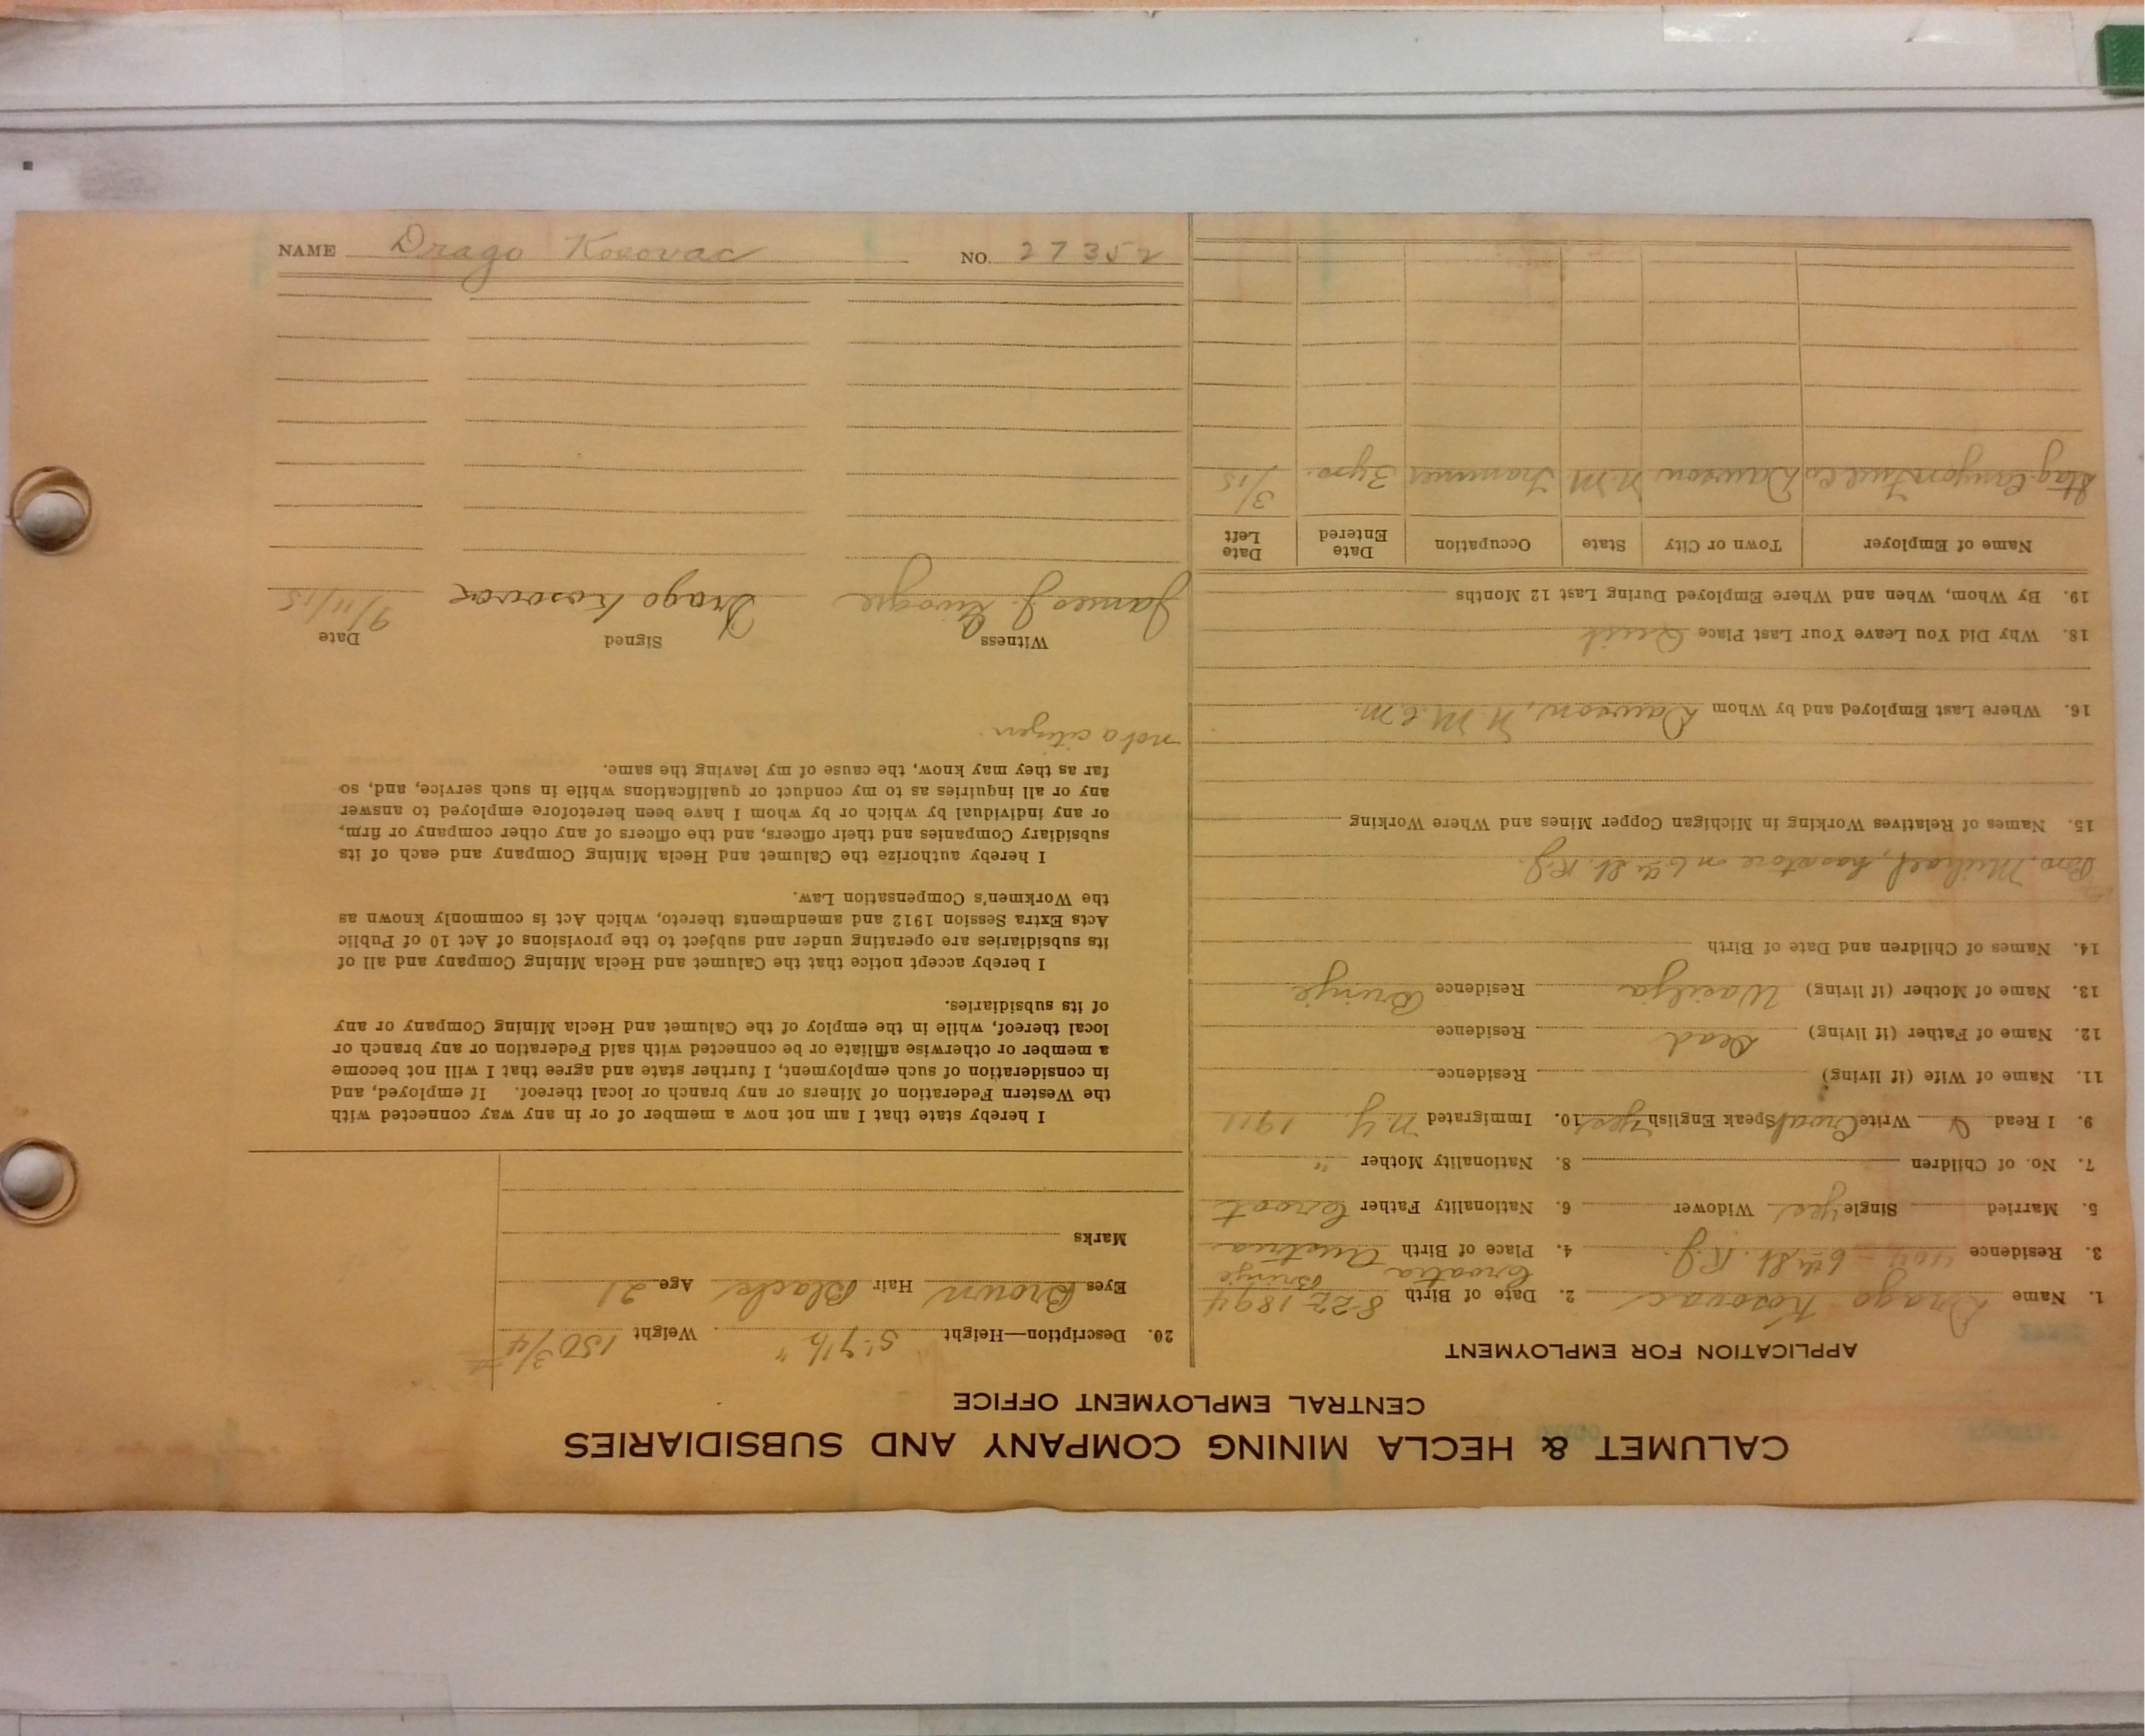 CALUMET & HECLA MINING COMPANY AND SUBSIDIARIES
CENTRAL EMPLOYMENT OFFICE
APPLICATION FOR EMPLOYMENT
1. Name Drago Kosovac 2. Date of Birth 8-22 1894
Croatia Brinje
3. Residence 404 - 6th St. R.J. 4. Place of Birth Austria
5. Married Single yes Widower 6. Nationality Father Croat
7. No. of Children 8. Nationality Mother "
9. I Read & Write Croat Speak English yes 10. Immigrated N.Y. 1911
11. Name of Wife (if living) Residence
12. Name of Father (if living) Dead Residence
13. Name of Mother (if living) Residence Brinje
14. Names of Children and Date of Birth
Bro. Michael, has store on 6th St. R.J.
15. Names of Relatives Working in Michigan Copper Mines and Where Working
16. Where Last Employed and by Whom Dawson, N.M.
18. Why Did You Leave Your Last Place Quit
19. By Whom, When and Where Employed During Last 12 Months
Name of Employer Town or City State Occupation Date Entered Date Left
Stag Canyon Fuel Co Dawson N.M. Trammer 3 yrs. 3/15
20. Description—Height 5' 7½" Weight 150 3/4
Eyes Brown Hair Black Age 21
Marks
I hereby state that I am not now a member of or in any way connected with
the Western Federation of Miners or any branch or local thereof. If employed, and
in consideration of such employment, I further state and agree that I will not become
a member or otherwise affiliate or be connected with said Federation or any branch or
local thereof, while in the employ of the Calumet and Hecla Mining Company or any
of its subsidiaries.
I hereby accept notice that the Calumet and Hecla Mining Company and all of
its subsidiaries are operating under and subject to the provisions of Act 10 of Public
Acts Extra Session 1912 and amendments thereto, which Act is commonly known as
the Workmen's Compensation Law.
I hereby authorize the Calumet and Hecla Mining Company and each of its
subsidiary Companies and their officers, and the officers of any other company or firm,
or any individual by which or by whom I have been heretofore employed to answer
any or all inquiries as to my conduct or qualifications while in such service, and, so
far as they may know, the cause of my leaving the same.
not a citizen
Witness Signed Date
James J. Drago Kosovac 9/11/15
NAME Drago Kosovac NO. 27352